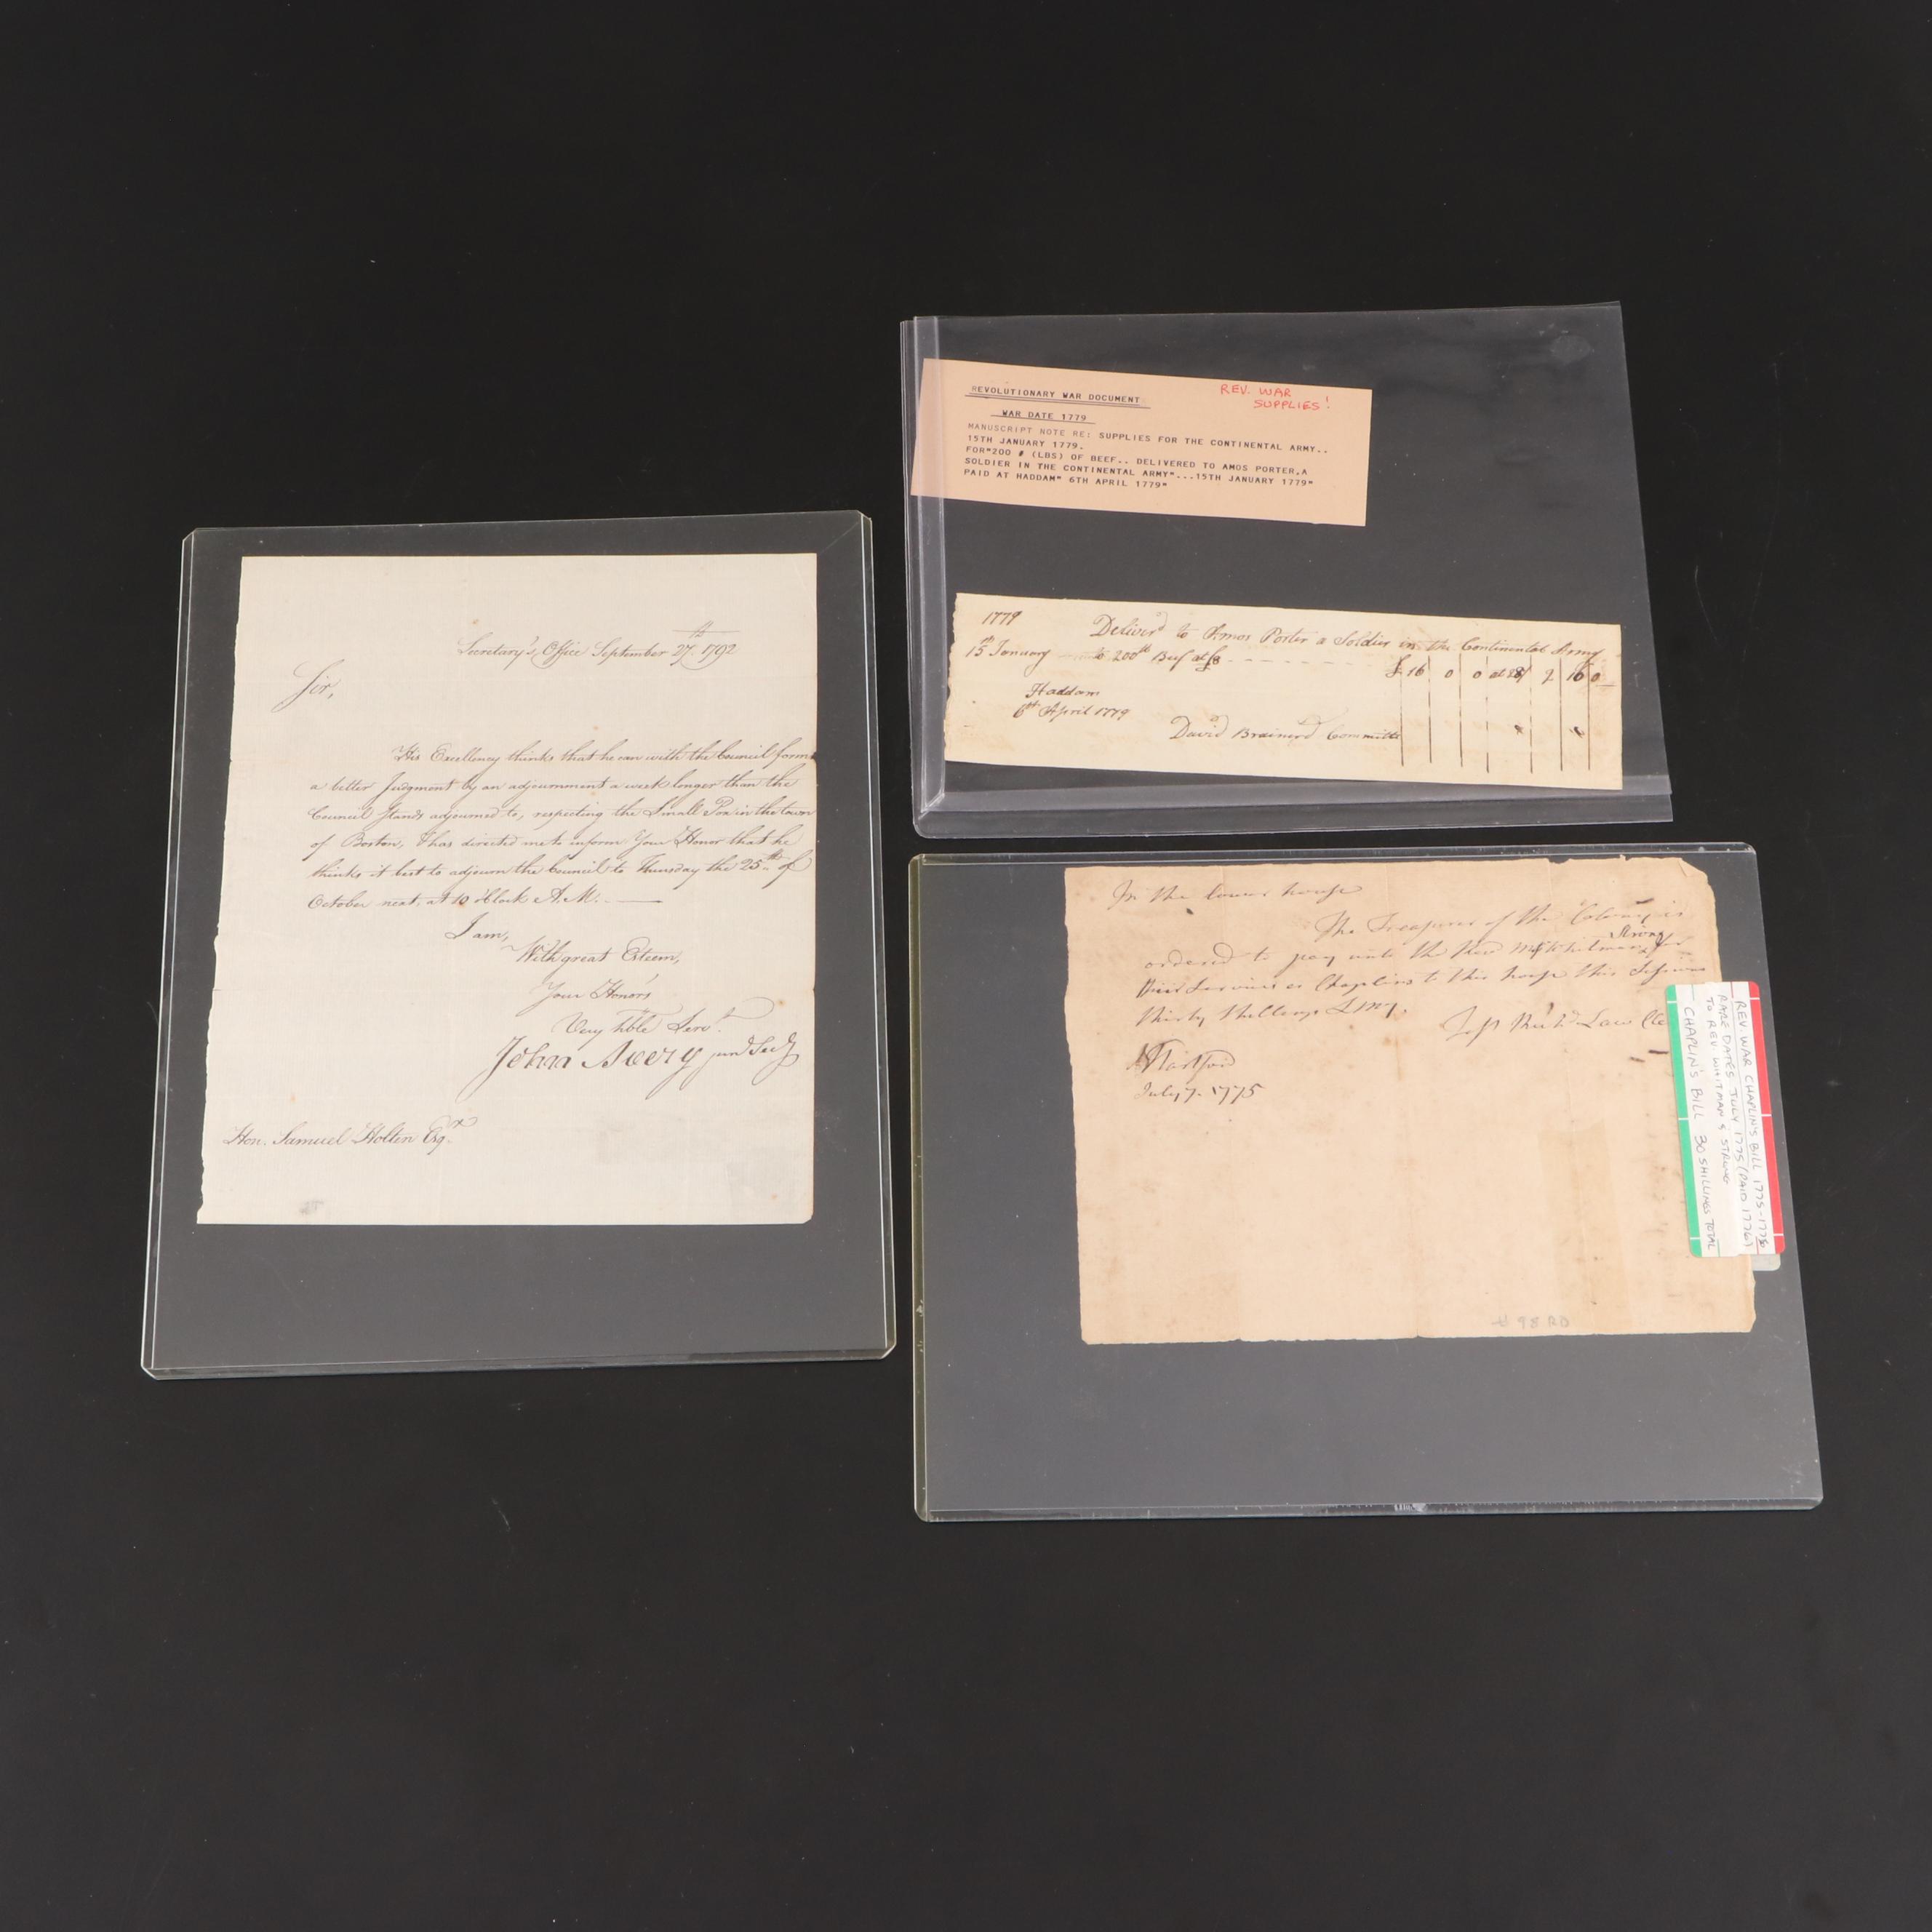 Secretary's Office September 27th 1792
Sir,
His Excellency thinks that he can with the Council form
a better Judgment by an adjournment a week longer than the
Council stands adjourned to, respecting the Small Pox in the town
of Boston, & has directed me to inform Your Honor that he
thinks it best to adjourn the Council to Thursday the 25th of
October next, at 10 oClock A.M.
I am,
With great Esteem,
Your Honor's
Very hble Servt.
John Avery junr Secy
Hon. Samuel Holten Esqr
REVOLUTIONARY WAR DOCUMENT
REV. WAR
SUPPLIES!
WAR DATE 1779
MANUSCRIPT NOTE RE: SUPPLIES FOR THE CONTINENTAL ARMY..
15TH JANUARY 1779.
FOR"200 # (LBS) OF BEEF.. DELIVERED TO AMOS PORTER,A
SOLDIER IN THE CONTINENTAL ARMY"...15TH JANUARY 1779"
PAID AT HADDAM" 6TH APRIL 1779"
1779 Deliverd to Amos Porter a Soldier in the Continental Army
15th January to 200lb Beef at £8 £ 16 0 0 16 0
Haddam
6th April 1779
David Brainerd Committe
In the lower house
The Treasurer of the Colony is
ordered to pay unto the Revd Whitman & Strong for
their Services as Chaplins to this house this Sessions
thirty Shillings L My.
Richd Law Cle
Hartford
July 7. 1775
# 98 RD
REV WAR CHAPLIN'S BILL 1775-1776
RARE DATES JULY 1775 (PAID 1776)
TO REV. WHITMAN & STRONG
CHAPLIN'S BILL 30 SHILLINGS TOTAL